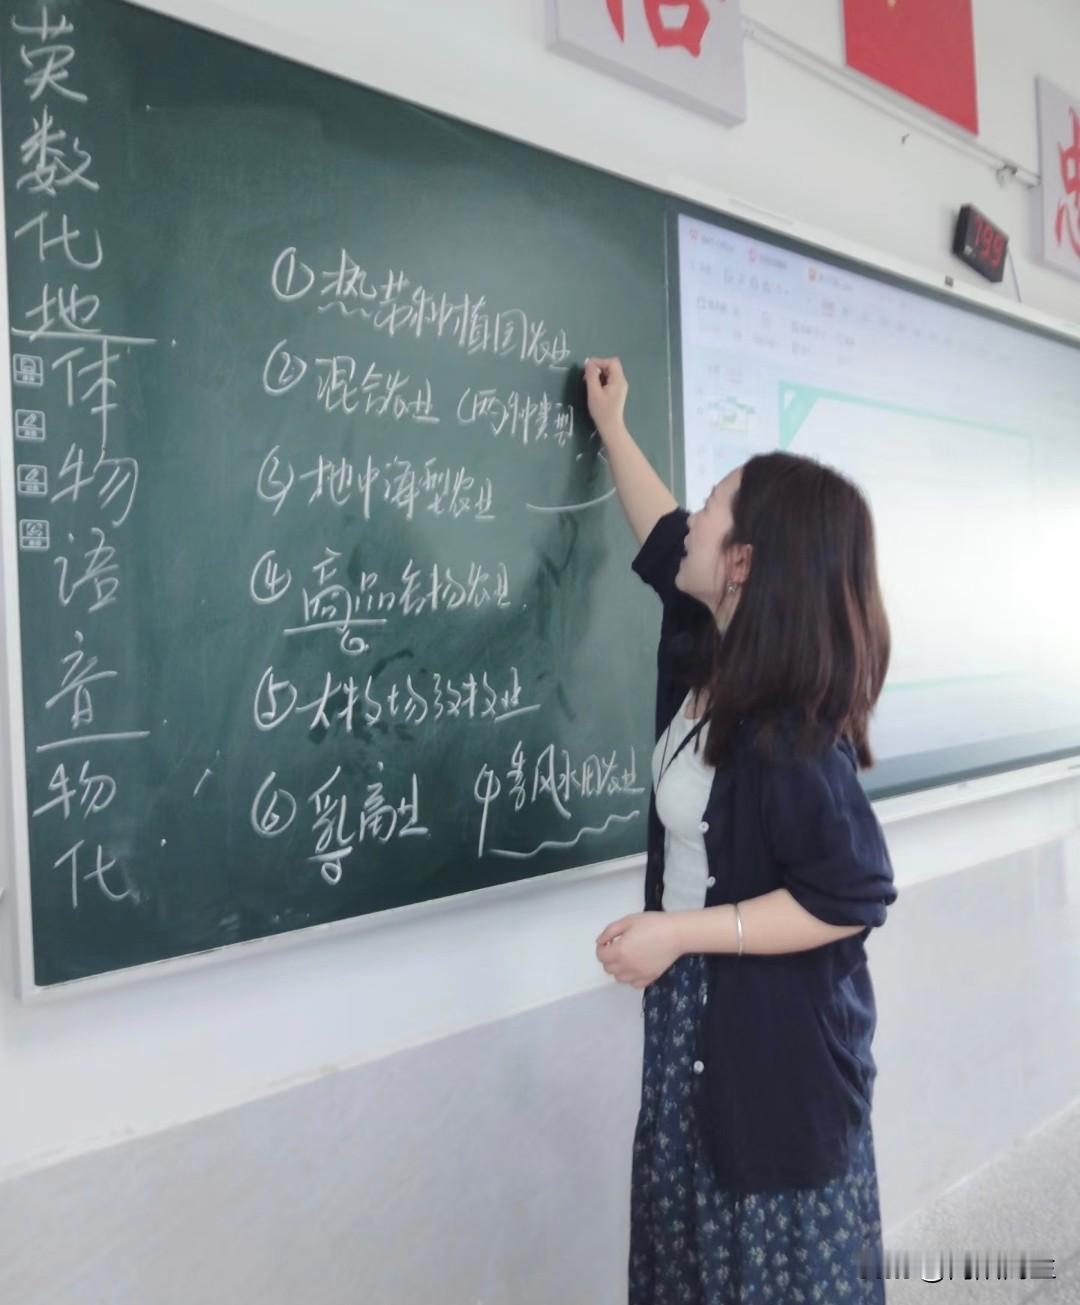 英
数
化
地
体
物
语
音
物
化
①热带种植园农业
②混合农业（两种类型
③地中海型农业
④商品谷物农业
⑤大牧场放牧业
⑥乳畜业
季风水田农业
信
忠
199